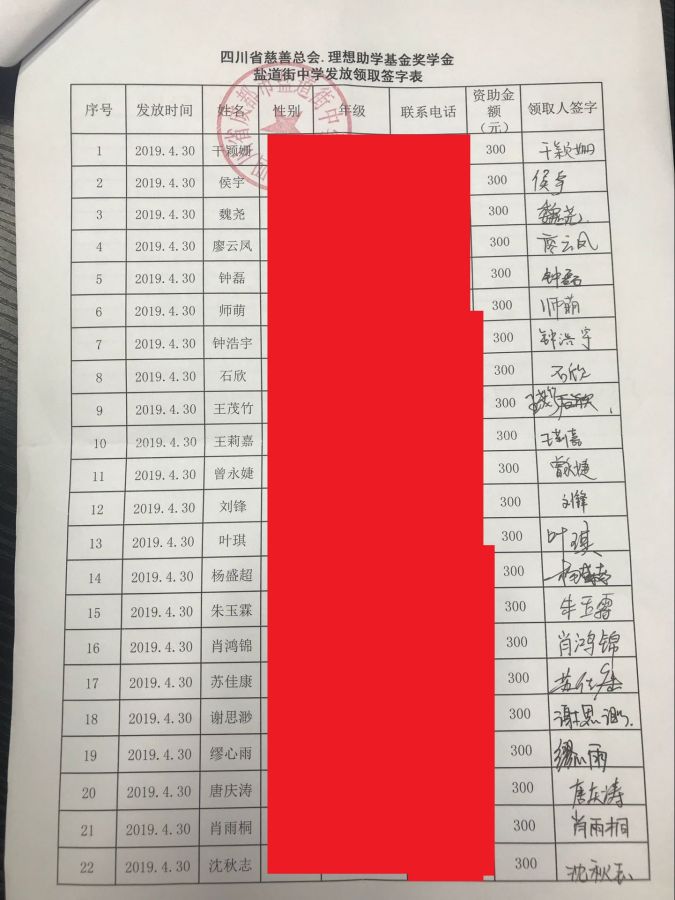 四川省慈善总会.理想助学基金奖学金
盐道街中学发放领取签字表
序号 发放时间 姓名 性别 年级 联系电话 资助金额（元） 领取人签字
1 2019.4.30 干颖姗 300 干颖姗
2 2019.4.30 侯宇 300 侯宇
3 2019.4.30 魏尧 300 魏尧
4 2019.4.30 廖云凤 300 廖云凤
5 2019.4.30 钟磊 300 钟磊
6 2019.4.30 师萌 300 师萌
7 2019.4.30 钟浩宇 300 钟浩宇
8 2019.4.30 石欣 300 石欣
9 2019.4.30 王茂竹 300
10 2019.4.30 王莉嘉 300 王莉嘉
11 2019.4.30 曾永婕 300 曾永婕
12 2019.4.30 刘锋 300 刘锋
13 2019.4.30 叶琪 300 叶琪
14 2019.4.30 杨盛超 300
15 2019.4.30 朱玉霖 300 朱玉霖
16 2019.4.30 肖鸿锦 300 肖鸿锦
17 2019.4.30 苏佳康 300 苏佳康
18 2019.4.30 谢思渺 300 谢思渺
19 2019.4.30 缪心雨 300 缪心雨
20 2019.4.30 唐庆涛 300 唐庆涛
21 2019.4.30 肖雨桐 300 肖雨桐
22 2019.4.30 沈秋志 300 沈秋志